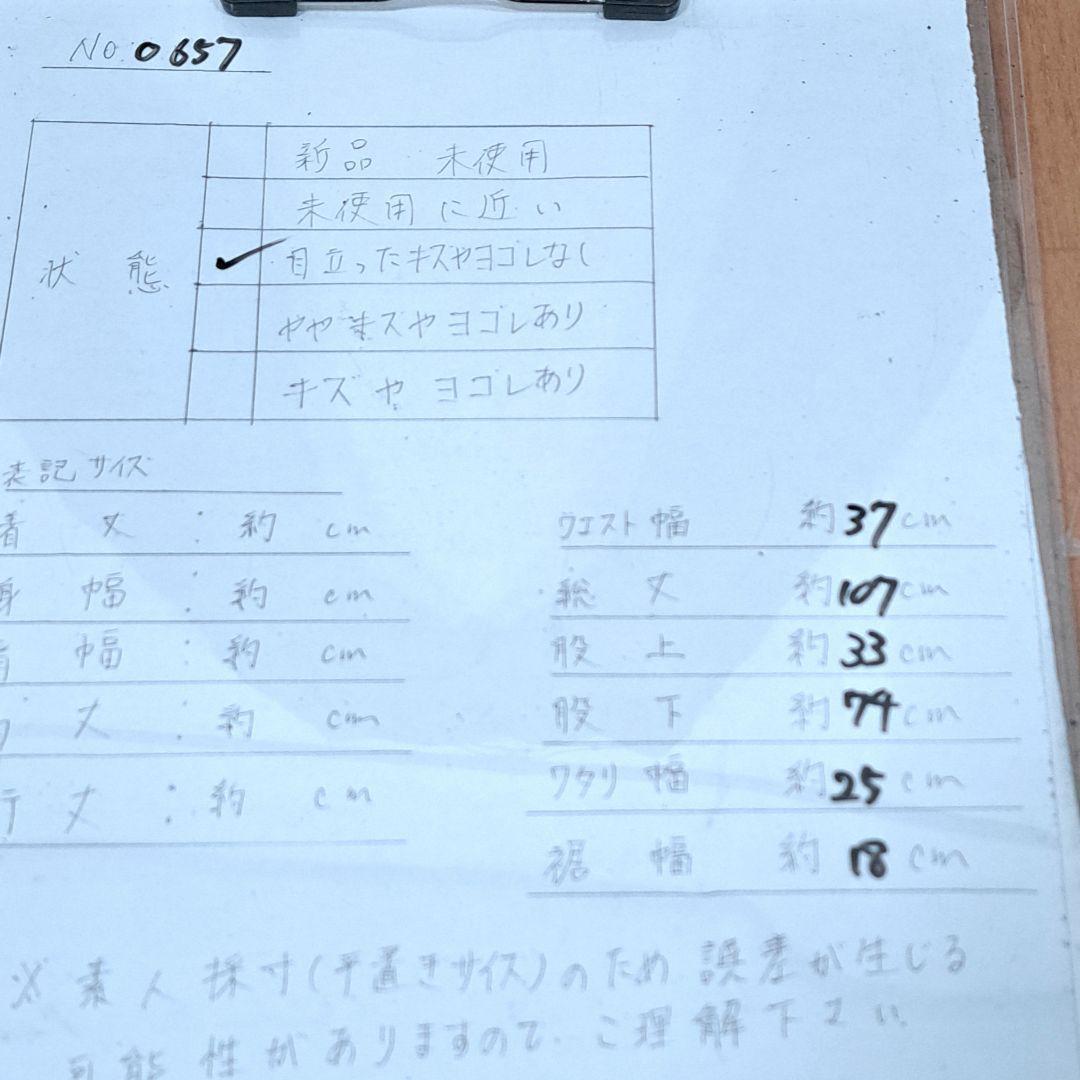 No. 0657
状態
新品 未使用
未使用に近い
✓ 目立ったキズやヨゴレなし
ややキズやヨゴレあり
キズやヨゴレあり
表記サイズ
着丈:約 cm
身幅:約 cm
肩幅:約 cm
丈:約 cm
丈:約 cm
ウエスト幅 約37cm
総丈 約107cm
股上 約33cm
股下 約74cm
ワタリ幅 約25cm
裾幅 約18cm
※素人採寸(平置きサイズ)のため誤差が生じる
可能性がありますので、ご理解下さい